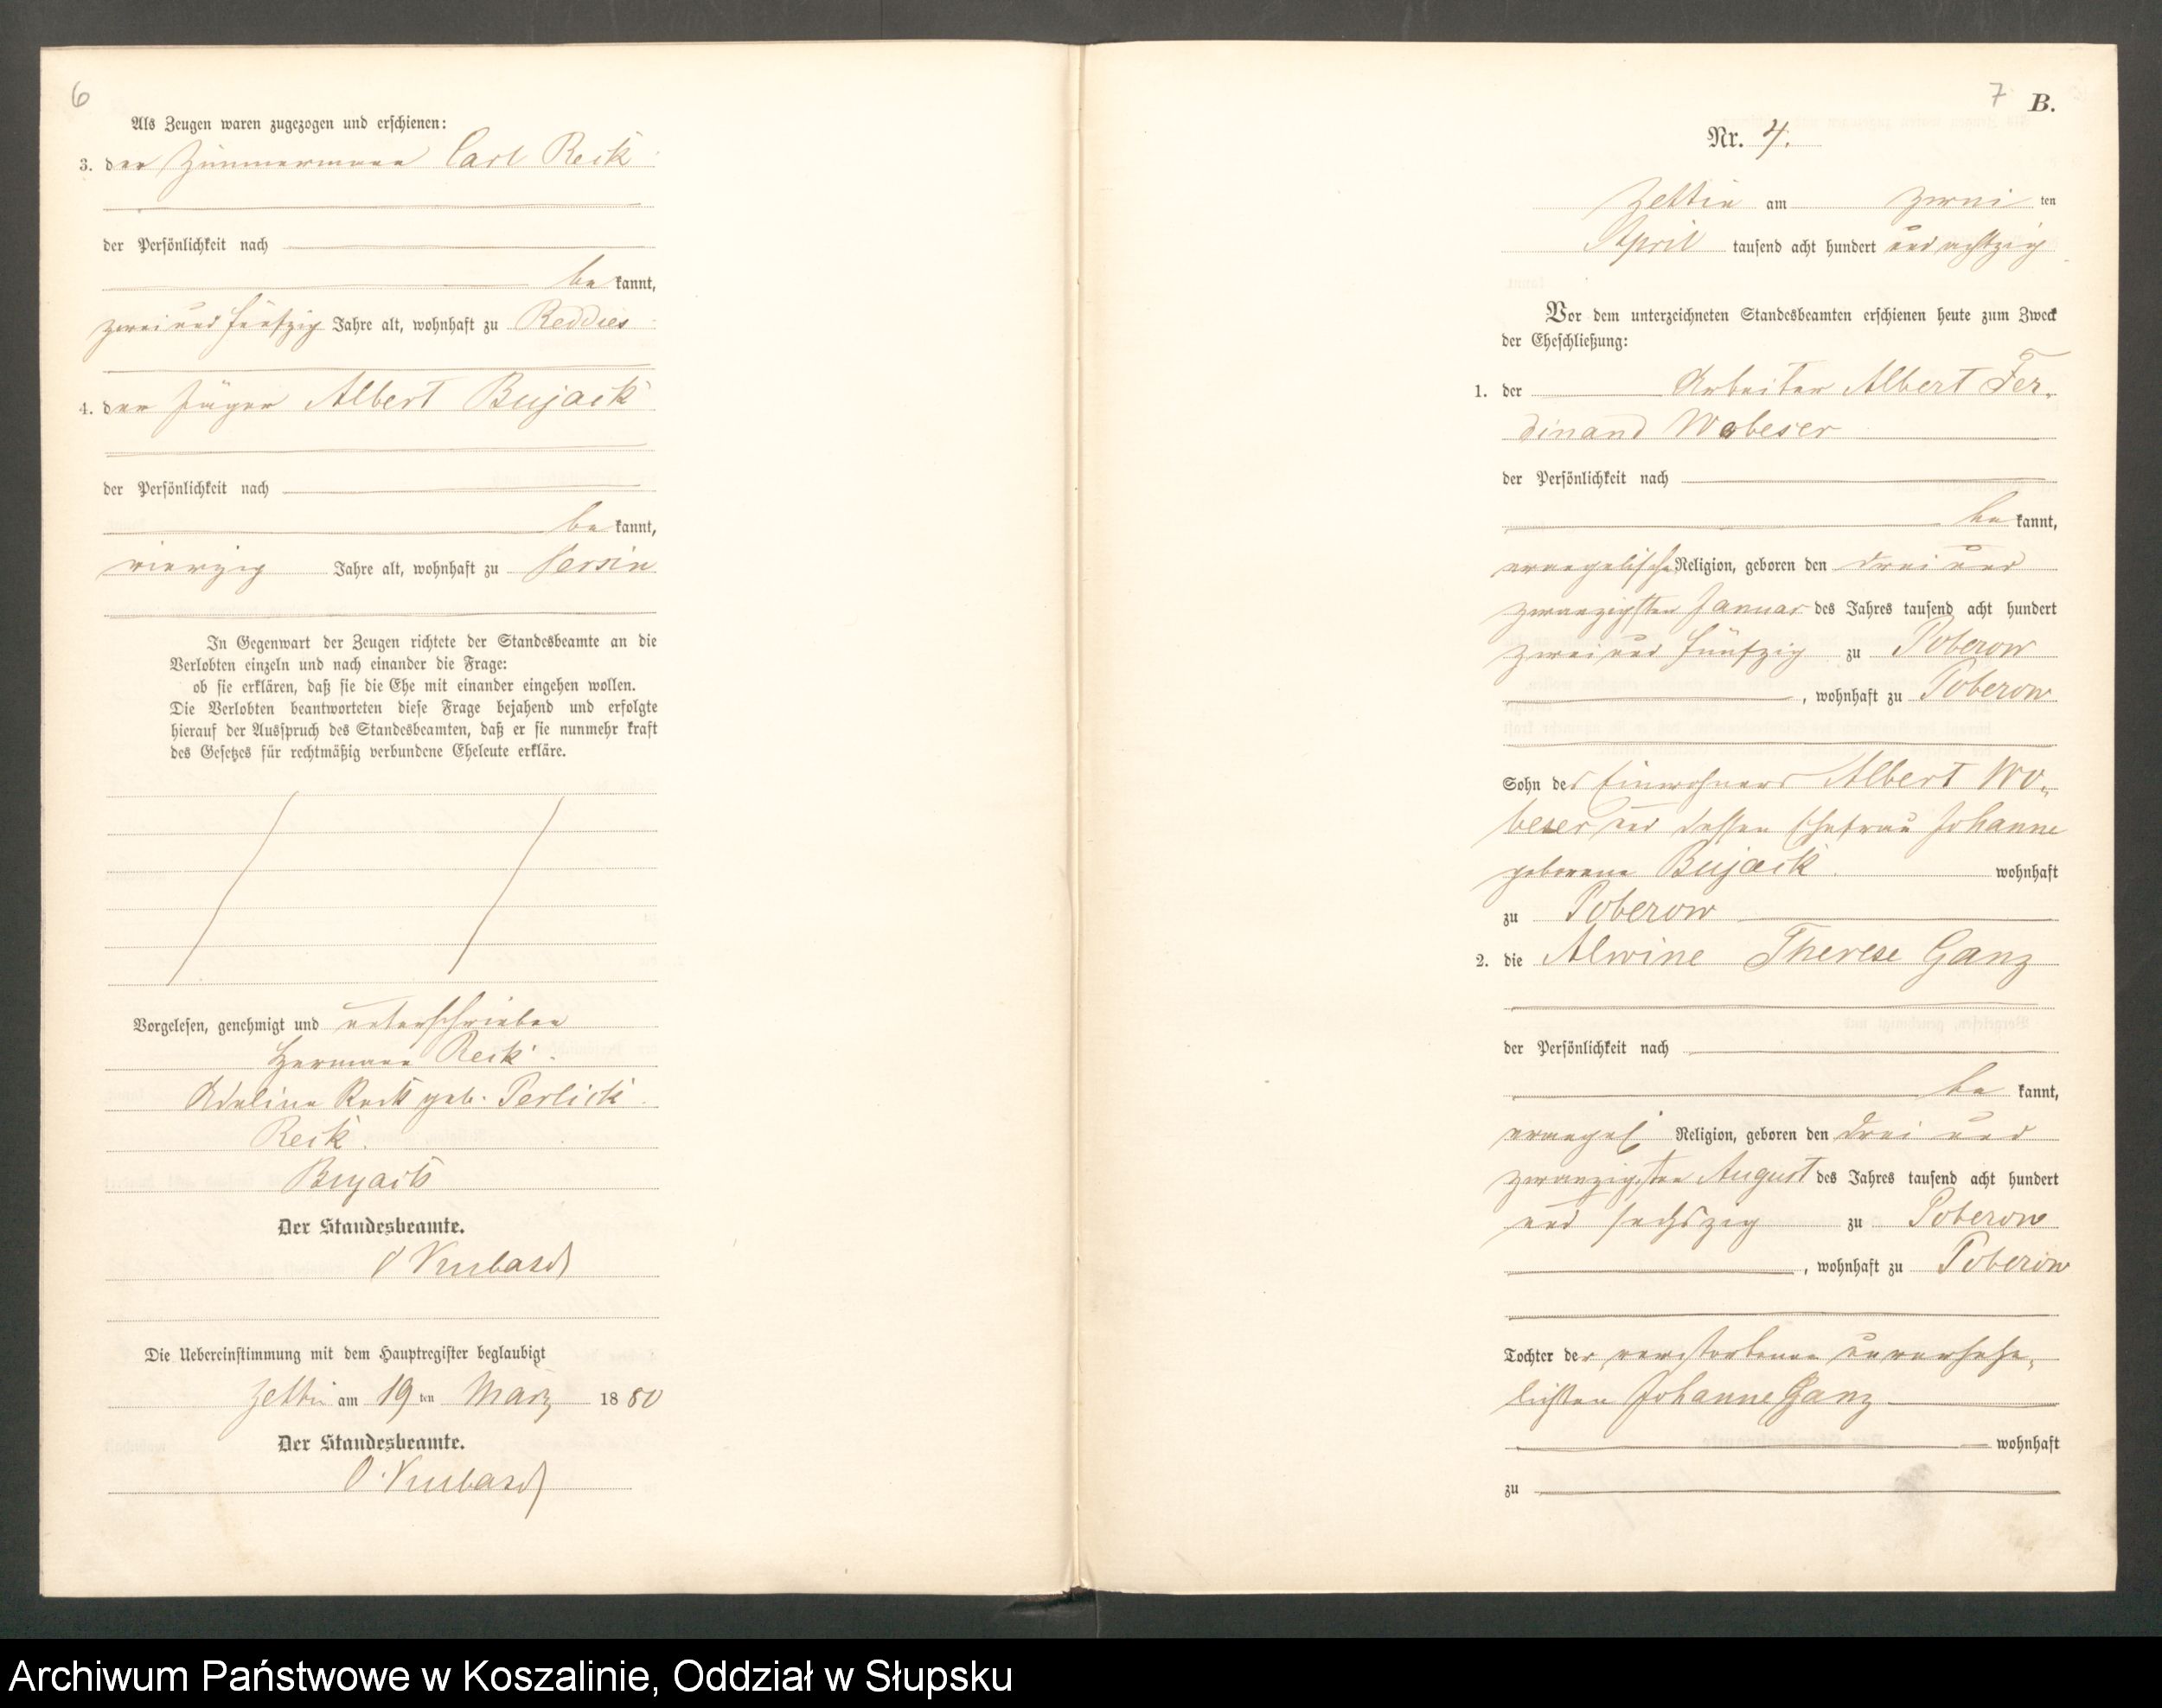 6
Als Zeugen waren zugezogen und erschienen:
3. der Zimmermann Carl Reck
der Persönlichkeit nach
be kannt,
zwei und fünfzig Jahre alt, wohnhaft zu Reddies
4. der Jäger Albert Bujack
der Persönlichkeit nach
be kannt,
vierzig Jahre alt, wohnhaft zu Versin
In Gegenwart der Zeugen richtete der Standesbeamte an die
Verlobten einzeln und nach einander die Frage:
ob sie erklären, daß sie die Ehe mit einander eingehen wollen.
Die Verlobten beantworteten diese Frage bejahend und erfolgte
hierauf der Ausspruch des Standesbeamten, daß er sie nunmehr kraft
des Gesetzes für rechtmäßig verbundene Eheleute erkläre.
Vorgelesen, genehmigt und unterschrieben
Hermann Reck.
Adeline Reck geb. Perlick.
Reck.
Bujack
Der Standesbeamte.
O Kubasch
Die Uebereinstimmung mit dem Hauptregister beglaubigt
Zettin am 19 ten März 1880
Der Standesbeamte.
O. Kubasch
7 B.
Nr. 4.
Zettin am zwei ten
April tausend acht hundert und achtzig
Vor dem unterzeichneten Standesbeamten erschienen heute zum Zweck
der Eheschließung:
1. der Arbeiter Albert Fer-
dinand Wobeser
der Persönlichkeit nach
be kannt,
evangelische Religion, geboren den drei und
zwanzigsten Januar des Jahres tausend acht hundert
zwei und fünfzig zu Poberow
, wohnhaft zu Poberow
Sohn des Einwohners Albert Wo-
beser und dessen Ehefrau Johanne
geborene Bujack wohnhaft
zu Poberow
2. die Alwine Therese Ganz
der Persönlichkeit nach
be kannt,
evangel Religion, geboren den drei und
zwanzigsten August des Jahres tausend acht hundert
und sechszig zu Poberow
, wohnhaft zu Poberow
Tochter der verstorbenen unverehe-
lichten Johanne Ganz
wohnhaft
zu
Archiwum Państwowe w Koszalinie, Oddział w Słupsku